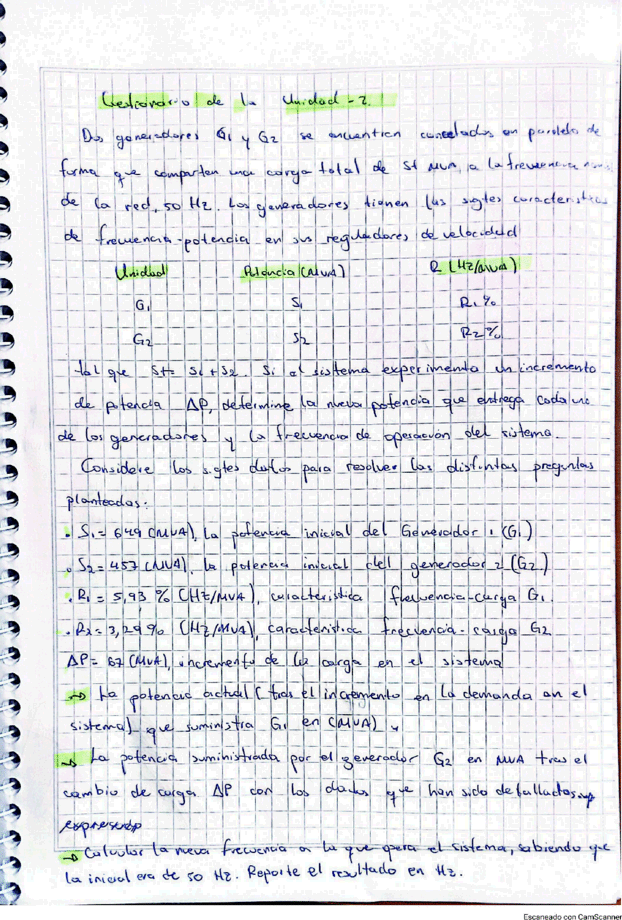 Cuestionario de la Unidad - 2.
Dos generadores G1 y G2 se encuentran conectados en paralelo de
forma que comparten una carga total de St MVA, a la frecuencia
de la red, 50 Hz. Los generadores tienen las sgtes caracteristicas
de frecuencia-potencia en sus reguladores de velocidad
Unidad Potencia (MVA) R (HZ/MVA)
G1 S1 R1 %
G2 S2 R2 %
tal que St = S1 + S2. Si el sistema experimenta un incremento
de potencia ΔP, determine la nueva potencia que entrega cada uno
de los generadores y la frecuencia de operación del sistema.
Considere los sgtes datos para resolver las distintas preguntas
planteadas:
. S1 = 649 (MVA), La potencia inicial del Generador 1 (G1)
. S2 = 457 (MVA), la potencia inicial del generador 2 (G2)
. R1 = 5,93 % (HZ/MVA), caracteristica frecuencia-carga G1.
. R2 = 3,29 % (HZ/MVA), caracteristica frecuencia-carga G2
ΔP = 67 (MVA), incremento de la carga en el sistema
→ La potencia actual (tras el incremento en la demanda en el
sistema) que suministra G1 en (MVA)
→ La potencia suministrada por el generador G2 en MVA tras el
cambio de carga ΔP con los datos que han sido detallados
→ Calcular la nueva frecuencia a la que opera el sistema, sabiendo que
la inicial era de 50 Hz. Reporte el resultado en Hz.
Escaneado con CamScanner